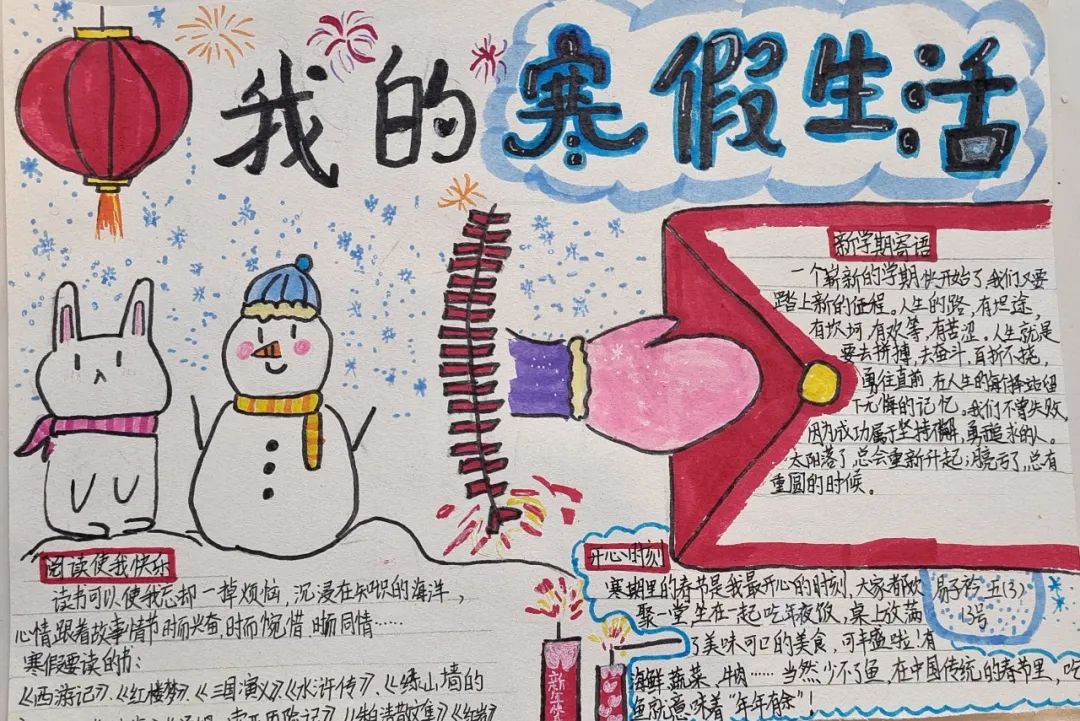 我的寒假生活
新学期寄语
一个崭新的学期快开始了我们又要
踏上新的征程。人生的路,有坦途,
有坎坷,有欢笑,有苦涩。人生就是
要去拼搏,去奋斗,百折不挠,
勇往直前,在人生的海择边留
下无悔的记忆。我们不曾失败,
因为成功属于坚持不懈,勇于追求的人。
太阳落了,总会重新升起;月亮亏了,总有
重圆的时候。
阅读使我快乐
读书可以使我忘却一掉烦恼,沉浸在知识的海洋,
心情跟着故事情节时而兴奋,时而惋惜,时而同情……
寒假要读的书:
《西游记》、《红楼梦》、《三国演义》《水浒传》、《绿山墙的
开心时刻
寒期里的春节是我最开心的时刻,大家都欢
聚一堂坐在一起吃年夜饭,桌上放满
了美味可口的美食,可丰盛啦!有
海鲜,蔬菜、牛肉……当然少不了鱼,在中国传统的春节里,吃
鱼就意味着“年年有余”!
五(3)
13号
新年快